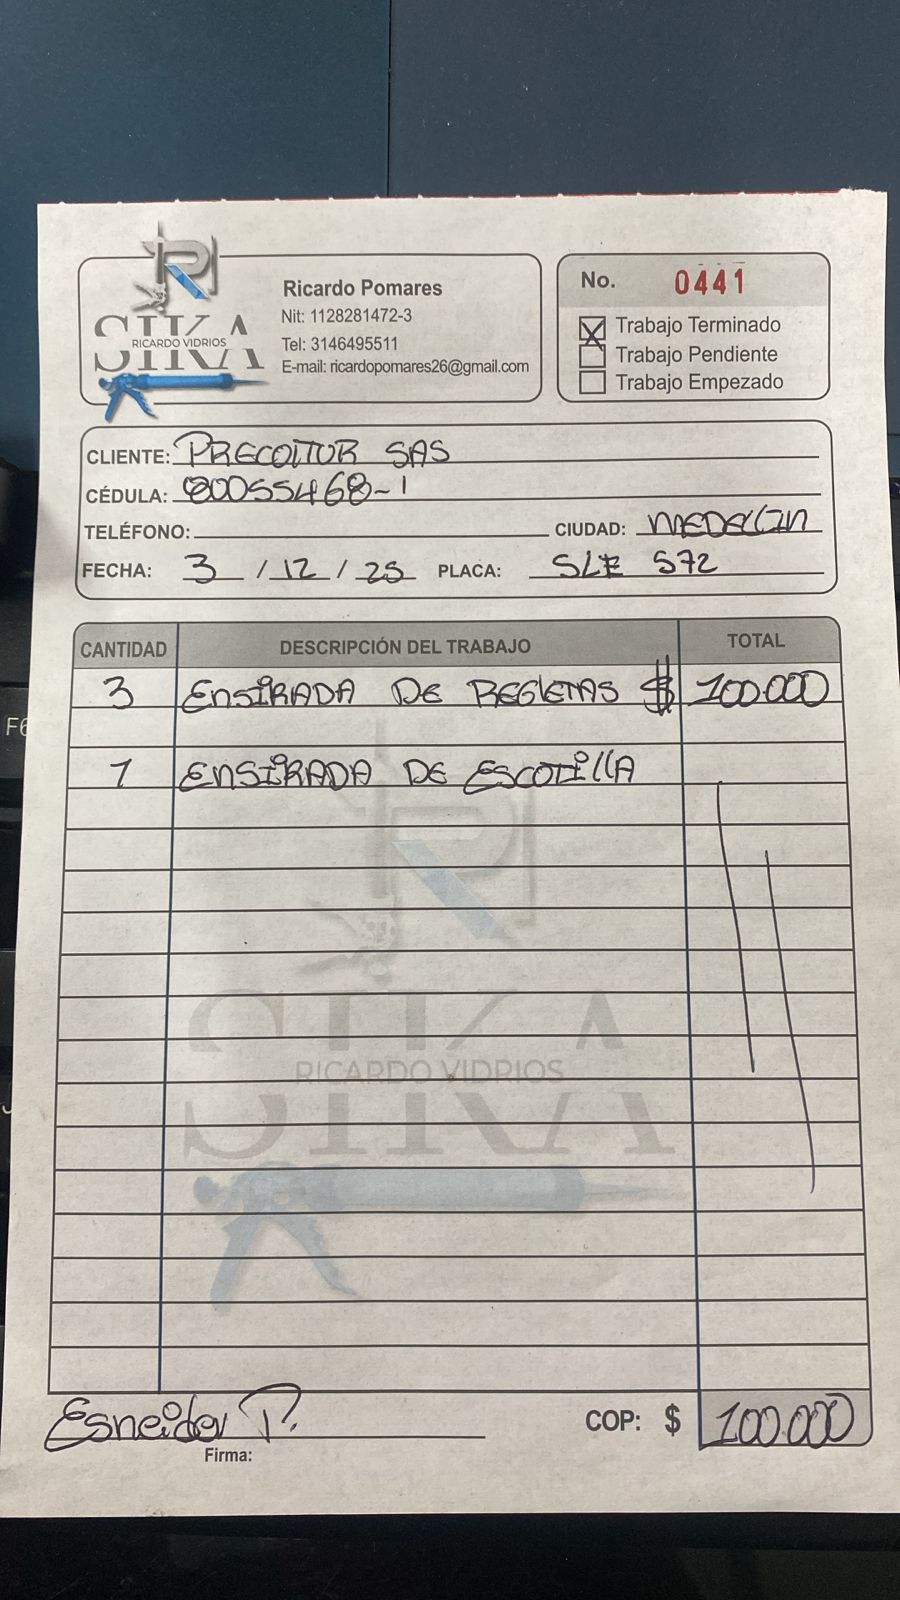 Ricardo Pomares
Nit: 1128281472-3
Tel: 3146495511
E-mail: ricardopomares26@gmail.com
SIKA
RICARDO VIDRIOS
No. 0441
X Trabajo Terminado
Trabajo Pendiente
Trabajo Empezado
CLIENTE: PRECOLTUR SAS
CÉDULA: 80055468-1
TELÉFONO: CIUDAD: MEDELLIN
FECHA: 3 / 12 / 25 PLACA: SLE 572
CANTIDAD DESCRIPCIÓN DEL TRABAJO TOTAL
3 ENSIRADA DE REGLETAS $ 100.000
1 ENSIRADA DE ESCOTILLA
SIKA
RICARDO VIDRIOS
Esneider P. COP: $ 100.000
Firma:
F6